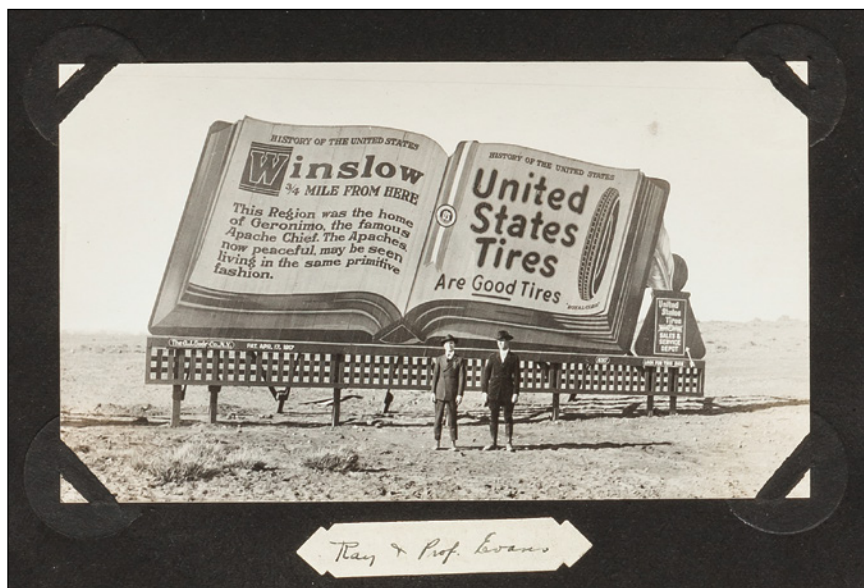 HISTORY OF THE UNITED STATES
Winslow
¾ MILE FROM HERE
This Region was the home
of Geronimo, the famous
Apache Chief. The Apaches,
now peaceful, may be seen
living in the same primitive
fashion.
HISTORY OF THE UNITED STATES
United
States
Tires
Are Good Tires
United
States
Tires
SALES &
SERVICE
DEPOT
PAT. APRIL 17, 1917
Ray & Prof. Evans